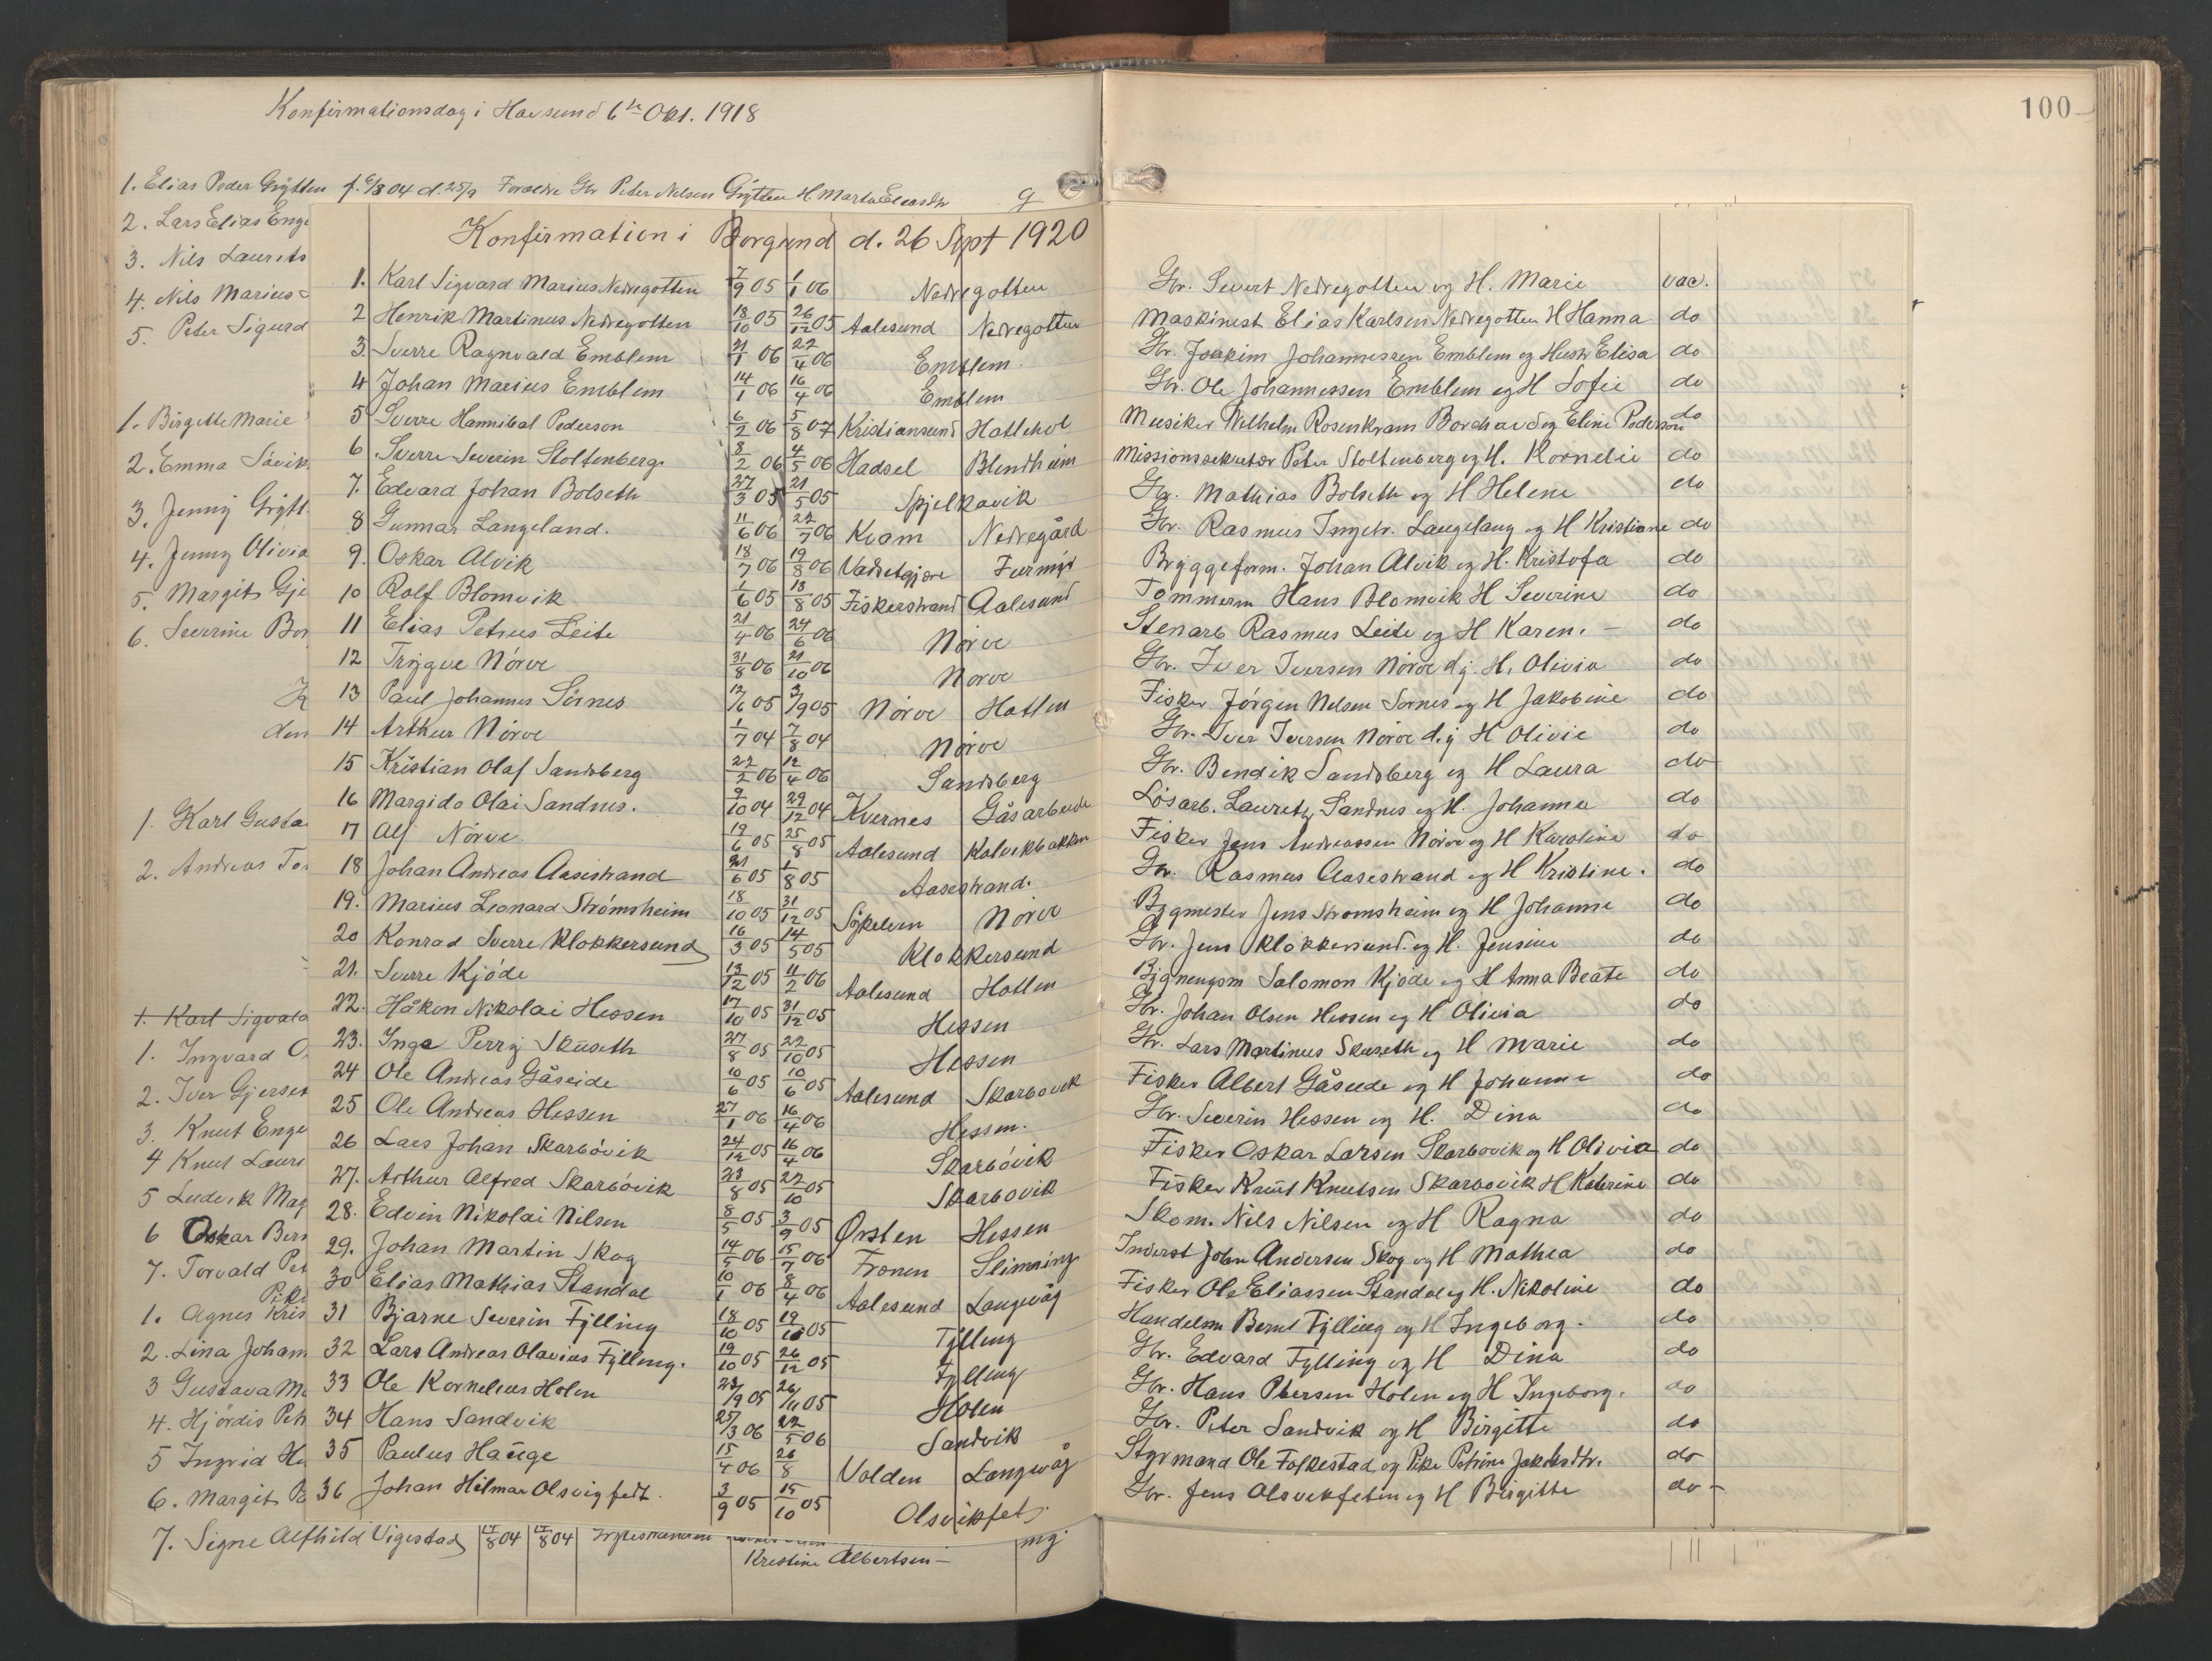 100
Konfirmationsdag i Havsund 6te Okt. 1918
1. Elias Peder Grytten f. 6/8 04 d. 25/9 Forældre Gbr Peter Nelsen Grytten H Marta Eliasdtr g
2. Lars Elias Enge
3. Nils Laurits
4. Nils Marius
5. Peter Sigurd
1. Birgitte Marie
2. Emma Søvik
3. Jenny Grytt
4. Jenny Olivia
5. Margit Gje
6. Severine Bor
den
1. Karl Gusta
2. Andreas Tor
1. Karl Sigvald
1. Ingvard O
2. Iver Gjerset
3. Knut Enge
4 Knut Lauri
5 Ludvik Mag
6 Oskar Bern
7. Torvald Pet
Piker
1. Agnes Kris
2. Lina Johan
3 Gustava Ma
4. Hjördis Pet
5 Ingrid Ha
6. Margit Pa
7. Signe Alfhild Vigestad 17/8 04 17/8 04
Kristine Albertsen - mg
Konfirmation i Borgund d. 26 Sept 1920
1. Karl Sigvard Marius Nedregotten 7/9 05 1/1 06 Nedregotten Gbr. Sivert Nedregotten og H. Marie vac.
2 Henrik Martinus Nedregotten 18/10 05 26/12 05 Aalesund Nedregotten Maskinist Elias Karlsen Nedregotten H Hanna do
3. Sverre Ragnvald Emblem 21/1 06 22/4 06 Emblem. Gbr. Joakim Johannessen Emblem og Hustr Elisa do
4 Johan Marius Emblem 14/1 06 16/4 06 Emblem Gbr. Ole Johannessen Emblem og H Sofie do
5 Sverre Hannibal Pederson 6/2 06 5/8 07 Kristiansund Hatlehol Musiker Vilhelm Rosenkram Borchavd og Eline Pederson do
6 Sverre Severin Stoltenberg 8/2 06 4/5 06 Hadsel Blindheim Missionssekretær Peter Stoltenberg og H. Kornelie do
7. Edvard Johan Bolseth 27/3 05 21/5 05 Spjelkavik Gbr. Mathias Bolseth og H Helene do
8 Gunnar Langeland. 11/6 06 22/7 06 Kvam Nedregård Gbr. Rasmus Ingebr. Langelang og H Kristiane do
9. Oskar Alvik 18/7 06 19/8 06 Vadsetgjære Furmyr Bryggeform. Johan Alvik og H. Kristofa do
10 Rolf Blomvik 1/6 05 13/8 05 Fiskerstrand Aalesund Tømmerm Hans Blomvik H Severine do
11 Elias Petrus Leite 21/4 06 24/6 06 Nörve Stenarb Rasmus Leite og H Karen. - do
12 Trygve Nörve 31/8 06 21/10 06 Nörve Gbr. Iver Iversen Nörve d.y. H. Olivia do
13 Paul Johannes Sörnes 12/6 05 3/9 05 Nörve Hatlen Fisker Jörgen Nelsen Sørnes og H Jakobine do
14 Arthur Nörve 1/7 04 7/8 04 Nörve Gbr. Iver Iversen Nörve d.y H Olivie do
15 Kristian Olaf Sandsberg 22/2 06 12/4 06 Sandsberg Gbr. Bendik Sandsberg og H Laura do
16 Margido Olai Sandnes. 9/10 04 29/12 04 Kvernes Gåsarbeide Løsarb. Lauretz Sandnes og H. Johanna do
17 Alf Nörve. 19/6 05 25/8 05 Aalesund Kalvikbakken Fisker Jens Andreassen Nörve og H Karoline do
18 Johan Andreas Aasestrand 21/6 05 1/8 05 Aasestrand. Gbr. Rasmus Aasestrand og H Kristine. do
19. Marius Leonard Strömsheim 18/10 05 31/12 05 Sykelven Nörve Bygmester Jens Strömsheim og H Johanne do
20 Konrad Sverre Klokkersund 16/3 05 14/5 05 Klokkersund Gbr. Jens Klokkersund. og H. Jensine do
21. Sverre Kjöde 13/12 05 11/2 06 Aalesund Hatlen Salomon Kjöde og H Anna Beate do
22. Håkon Nikolai Hessen 17/10 05 31/12 05 Hessen Gbr. Johan Olsen Hessen og H Olivia do
23. Inga Perry Skuseth 27/8 05 22/10 05 Hessen Gbr. Lars Martinus Skuseth og H Marie do
24 Ole Andreas Gåseide 10/6 05 10/6 05 Aalesund Skarbövik Fisker Albert Gåseide og H Johanne do
25 Ole Andreas Hessen 27/1 06 16/4 06 Hessen. Gbr. Severin Hessen og H. Dina do
26 Lars Johan Skarbövik 24/12 05 16/4 06 Skarbövik Fisker Oskar Larsen Skarbovik og H Olivia do
27. Arthur Alfred Skarbövik 23/8 05 22/10 05 Skarbovik Fisker Knut Knutsen Skarbovik H Katerine do
28. Edvin Nikolai Nilsen 8/5 05 3/9 05 Ørsten Hessen Skom. Nils Nilsen og H Ragna do
29. Johan Martin Skog 14/5 06 15/7 06 Fronen Slinning Inderst Johan Andersen Skog og H Mathea do
30 Elias Mathias Standal 10/1 06 8/4 06 Aalesund Langevåg Fisker Ole Eliassen Standal og H. Nikoline do
31 Bjarne Severin Fylling 18/10 05 19/10 05 Fylling Handelsm Bernt Fylling og H Ingeborg. do
32 Lars Andreas Olavius Fylling. 19/10 05 26/12 05 Fylling Gbr. Edvard Fylling og H Dina do
33 Ole Kornelius Holen 23/9 05 26/11 05 Holen Gbr. Hans Petersen Holen og H Ingeborg. do
34 Hans Sandvik 27/3 06 22/5 06 Sandvik Gbr. Peter Sandvik og H Birgitte do
35 Paulus Hauge 15/4 06 26/8 Volden Langevåg Styrmand Ole Folkestad og Pike Petrine Jakobsdtr. do
36 Johan Hilmar Olsvigfedt. 3/9 05 15/10 05 Olsvikfet. Gbr. Jens Olsvikfeten og H Birgitte do -